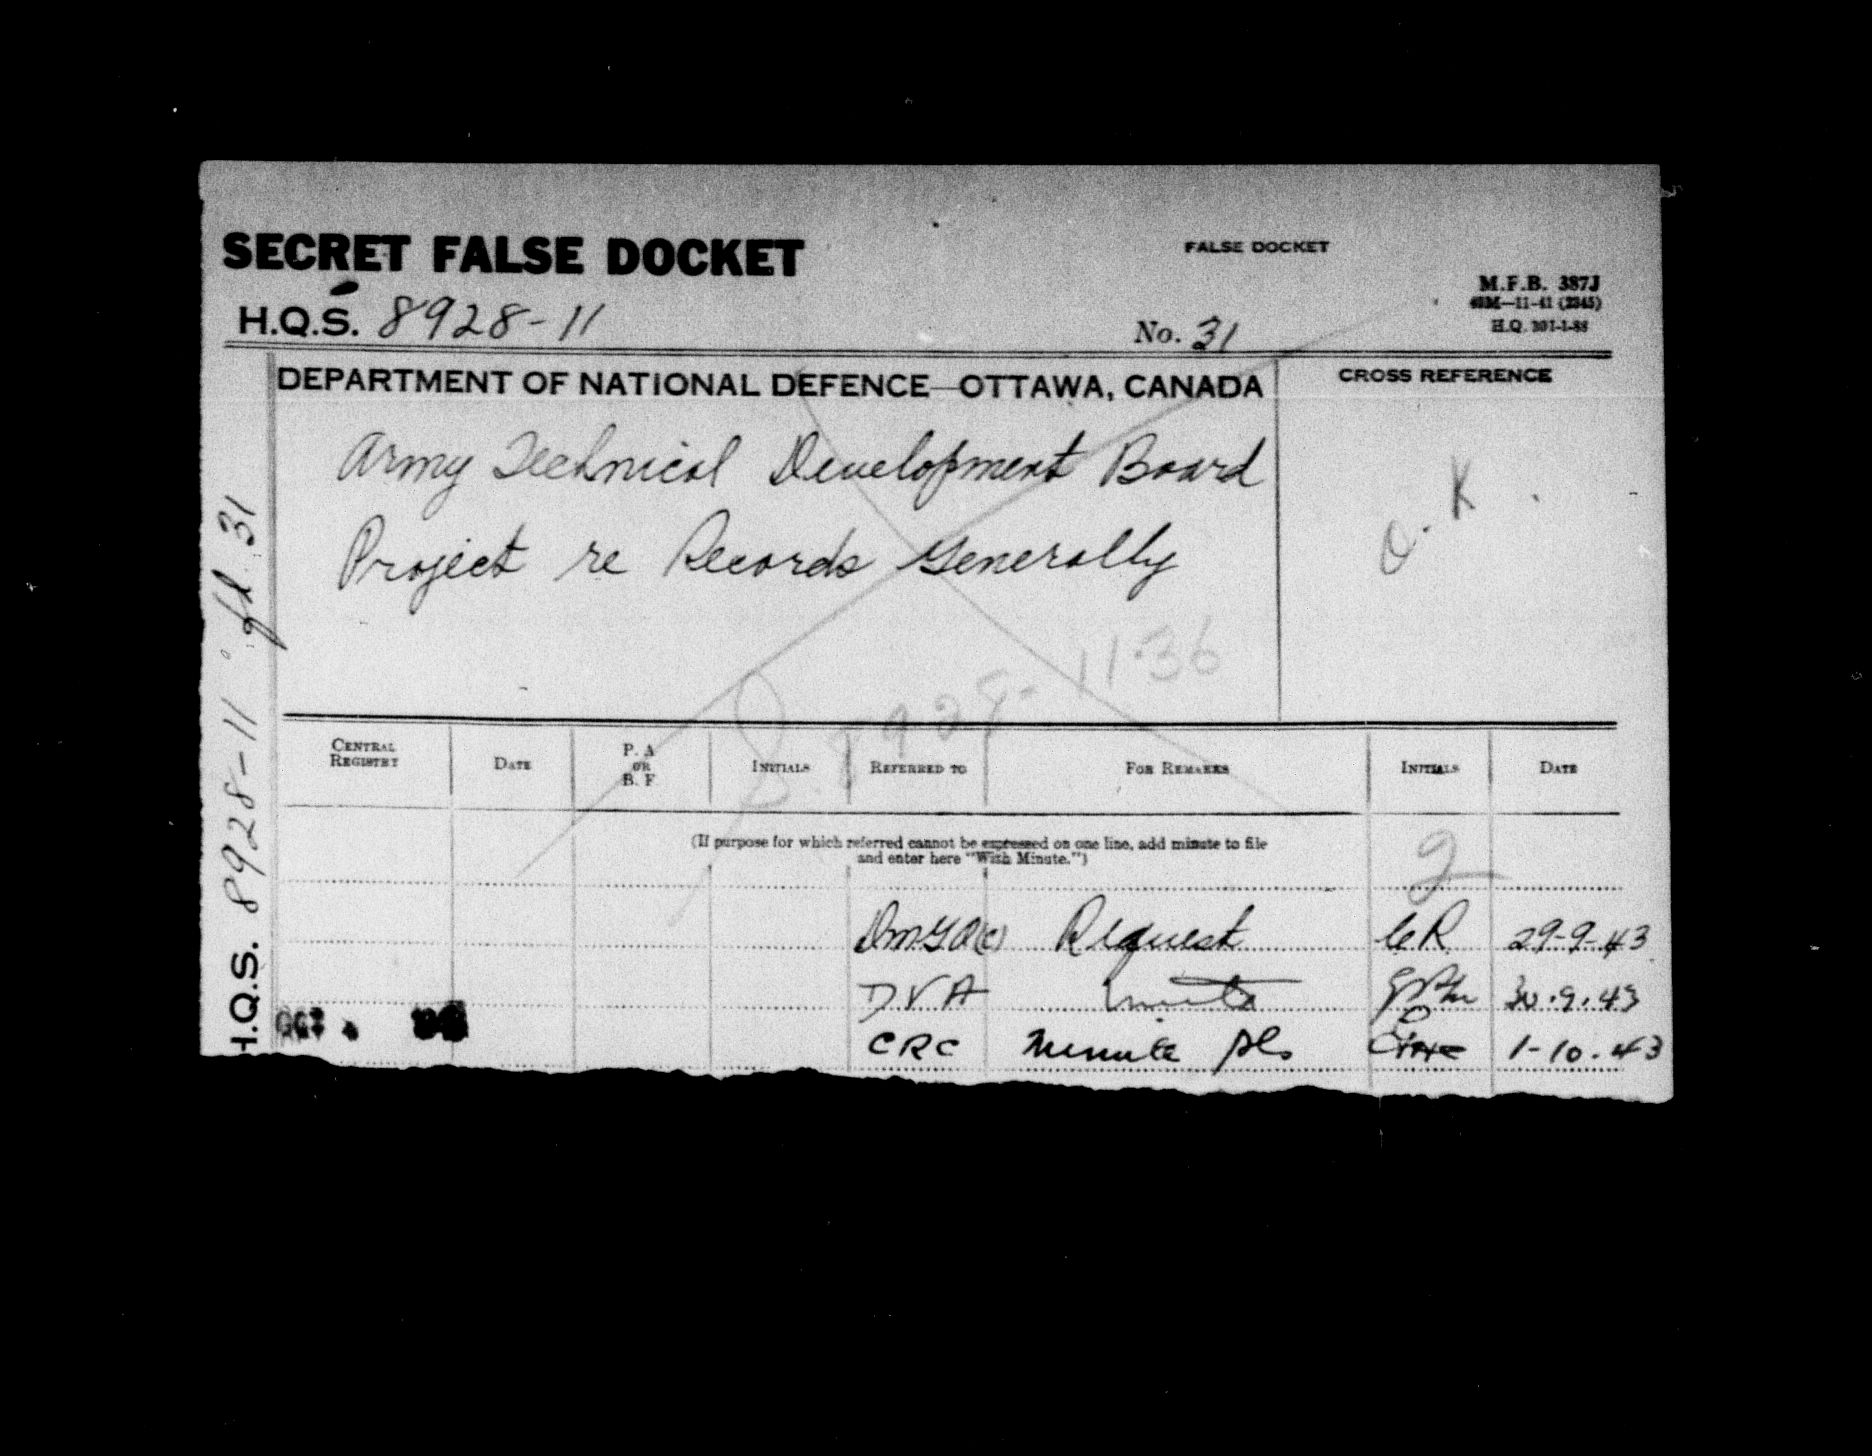 SECRET FALSE DOCKET
FALSE DOCKET
M.F.B. 387J
40M—11-41 (2345)
H.Q. 301-1-88
H.Q.S. 8928-11
No. 31
DEPARTMENT OF NATIONAL DEFENCE—OTTAWA, CANADA
CROSS REFERENCE
Army Technical Development Board
Project re Records Generally
O.K.
8928-11-36
H.Q.S. 8928-11 fd 31
CENTRAL REGISTRY DATE P. A OR B. F INITIALS REFERRED TO FOR REMARKS INITIALS DATE
(If purpose for which referred cannot be expressed on one line, add minute to file
and enter here "With Minute.")
2
DMGO(C) Request CR 29-9-43
DVA minute 30.9.43
CRC Minute pls 1-10.43
OCT